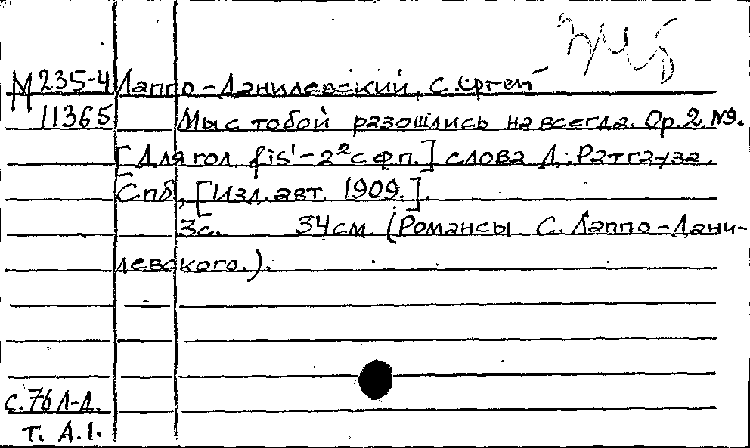 М 235-4 Лаппо-Данилевский, Сергей
11365 Мы с тобой разошлись навсегда. Ор. 2 №9.
[Для гол. fis¹-2² с фп.] слова Д. Ратгауза.
Спб, [Изд. авт. 1909.].
3с. 34см. (Романсы С. Лаппо-Дани-
левского.).
с. 76 Л-Д.
т. А.1.